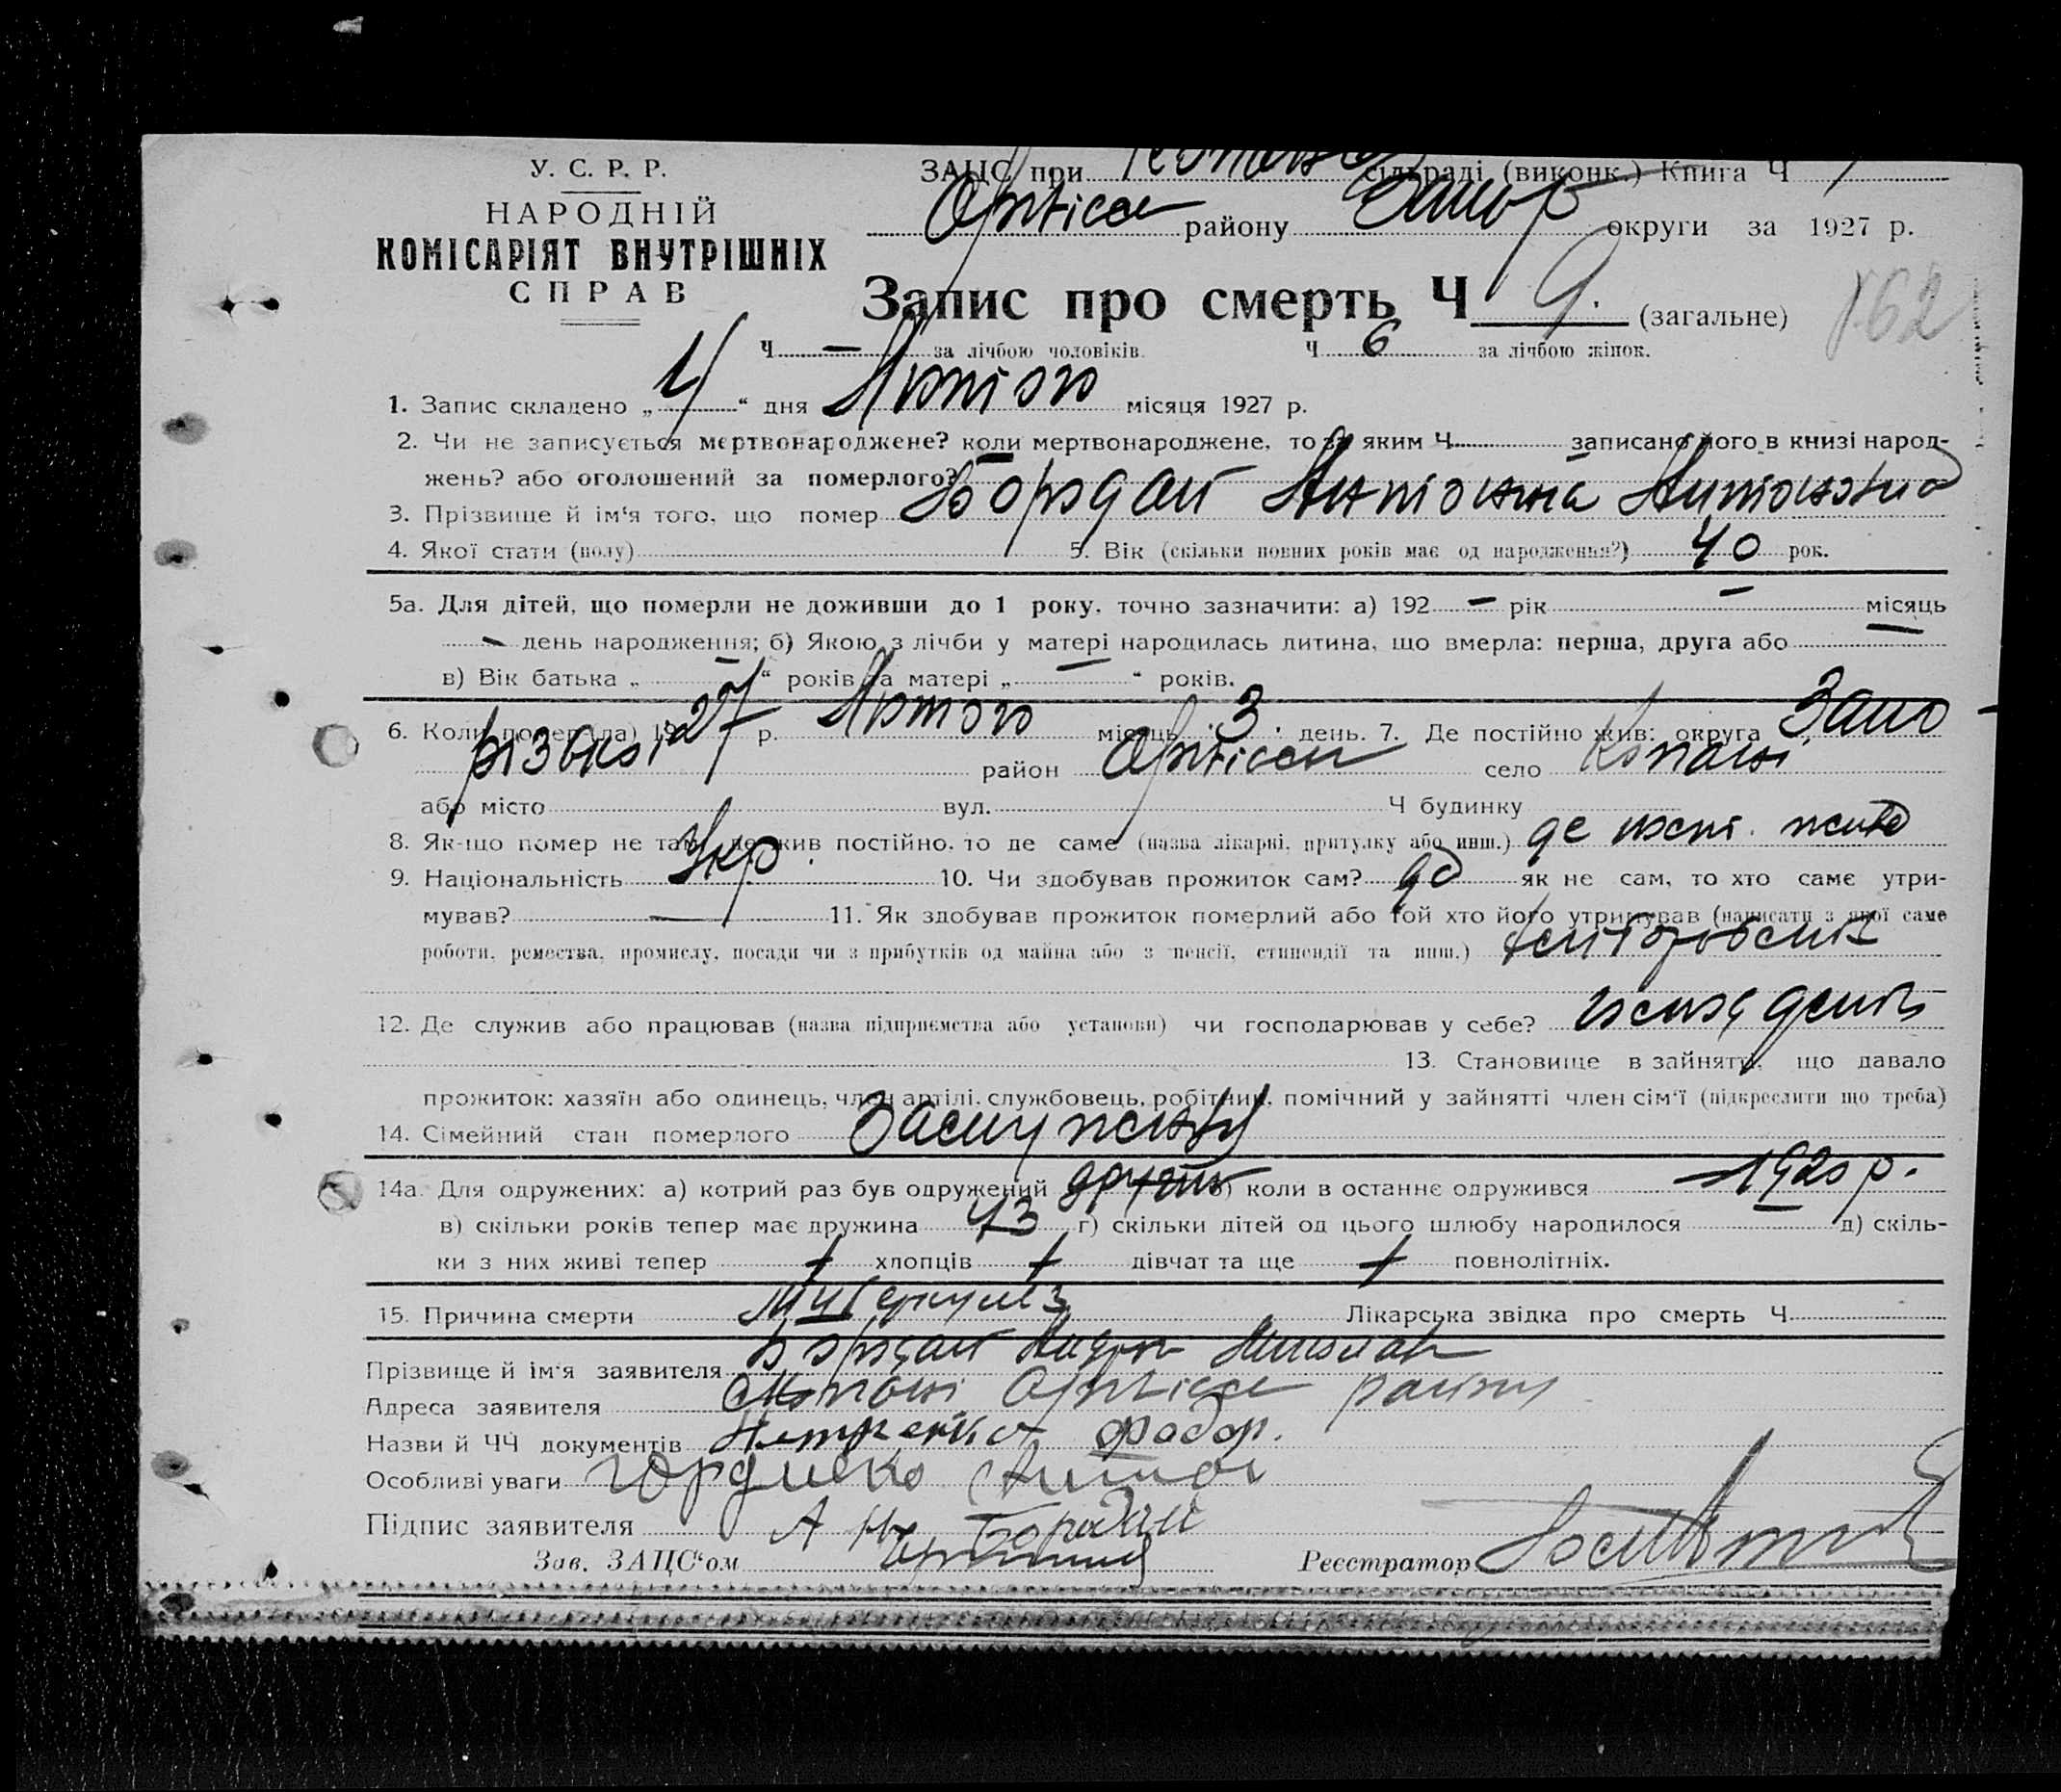 У. С. Р. Р.
НАРОДНІЙ
КОМІСАРІЯТ ВНУТРІШНІХ
СПРАВ
ЗАЦС при сільраді (виконк.) Книга Ч 1
Оріхівск району Запор округи за 1927 р.
Запис про смерть Ч 9. (загальне) 162
Ч — за лічбою чоловіків. Ч 6 за лічбою жінок.
1. Запис складено „ 4 “ дня Лютого місяця 1927 р.
2. Чи не записується мертвонароджене? коли мертвонароджене, то за яким Ч — записано його в книзі народ-
жень? або оголошений за померлого?
3. Прізвище й ім‘я того, що помер Бородай Антонина Антоновна
4. Якої стати (полу) 5. Вік (скільки повних років має од народження?) 40 рок.
5а. Для дітей, що померли не доживши до 1 року, точно зазначити: а) 192 — рік — місяць
— день народження; б) Якою з лічби у матері народилась дитина, що вмерла: перша, друга або —
в) Вік батька „ — “ років та матері „ — “ років.
6. Коли помер (ла) 1927 р. Лютого місяць 3 день. 7. Де постійно жив: округа Запо-
різької район Оріхівск село Копані
або місто вул. Ч будинку
8. Як-що помер не там, де жив постійно, то де саме (назва лікарні, притулку або инш.) де пост. жила
9. Національність Укр. 10. Чи здобував прожиток сам? да як не сам, то хто саме утри-
мував? — 11. Як здобував прожиток померлий або той хто його утримував (написати з якої саме
роботи, ремества, промислу, посади чи з прибутків од майна або з пенсії, стипендії та инш.)
12. Де служив або працював (назва підприємства або установи) чи господарював у себе?
13. Становище в зайнятті, що давало
прожиток: хазяїн або одинець, член артілі, службовець, робітник, помічний у зайнятті член сім‘ї (підкреслити що треба)
14. Сімейний стан померлого Замужня
14а. Для одружених: а) котрий раз був одружений другий б) коли в останнє одружився 1920 р.
в) скільки років тепер має дружина 43 г) скільки дітей од цього шлюбу народилося — д) скіль-
ки з них живі тепер хлопців дівчат та ще повнолітніх.
15. Причина смерти Туберкульоз Лікарська звідка про смерть Ч
Прізвище й ім‘я заявителя Бородай
Адреса заявителя с Копані Оріхівск району
Назви й ЧЧ документів
Особливі уваги
Підпис заявителя А Бородай
Зав. ЗАЦС‘ом
Реєстратор